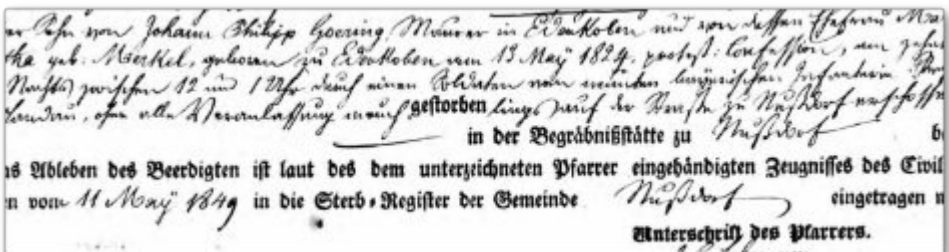 er Sohn von Johann Philipp Goering, Maurer in Edenkoben und von dessen Ehefrau Mar
tha geb. Merkel, geboren zu Edenkoben am 13 Maÿ 1824, protest: Confession, am zehn
Nachts zwischen 12 und 1 Uhr durch einen Soldaten vom neunten bayrischen Infanterie
Landau, ohne alle Veranlassung meuch gestorben lings auf der Straße zu Nußdorf erschossen
in der Begräbnißstätte zu Nußdorf b
as Ableben des Beerdigten ist laut des dem unterzeichneten Pfarrer eingehändigten Zeugnisses des Civil
n vom 11 Maÿ 1849 in die Sterb-Register der Gemeinde Nußdorf eingetragen n
Unterschrift des Pfarrers.